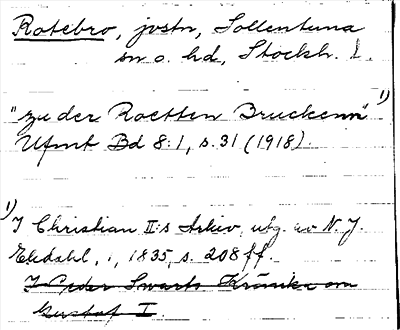 Rotebro, jvstn, Sollentuna
sn o. hd, Stockh. l.
"zu der Roetten Bruckenn" 1)
Ufmt Bd 8:1, s. 31 (1918).
1)
I Christian II:s Arkiv, utg. av N. J.
Ekdahl, 1, 1835, s. 208 ff.
I Peder Swarts Krönika om
Gustaf I.